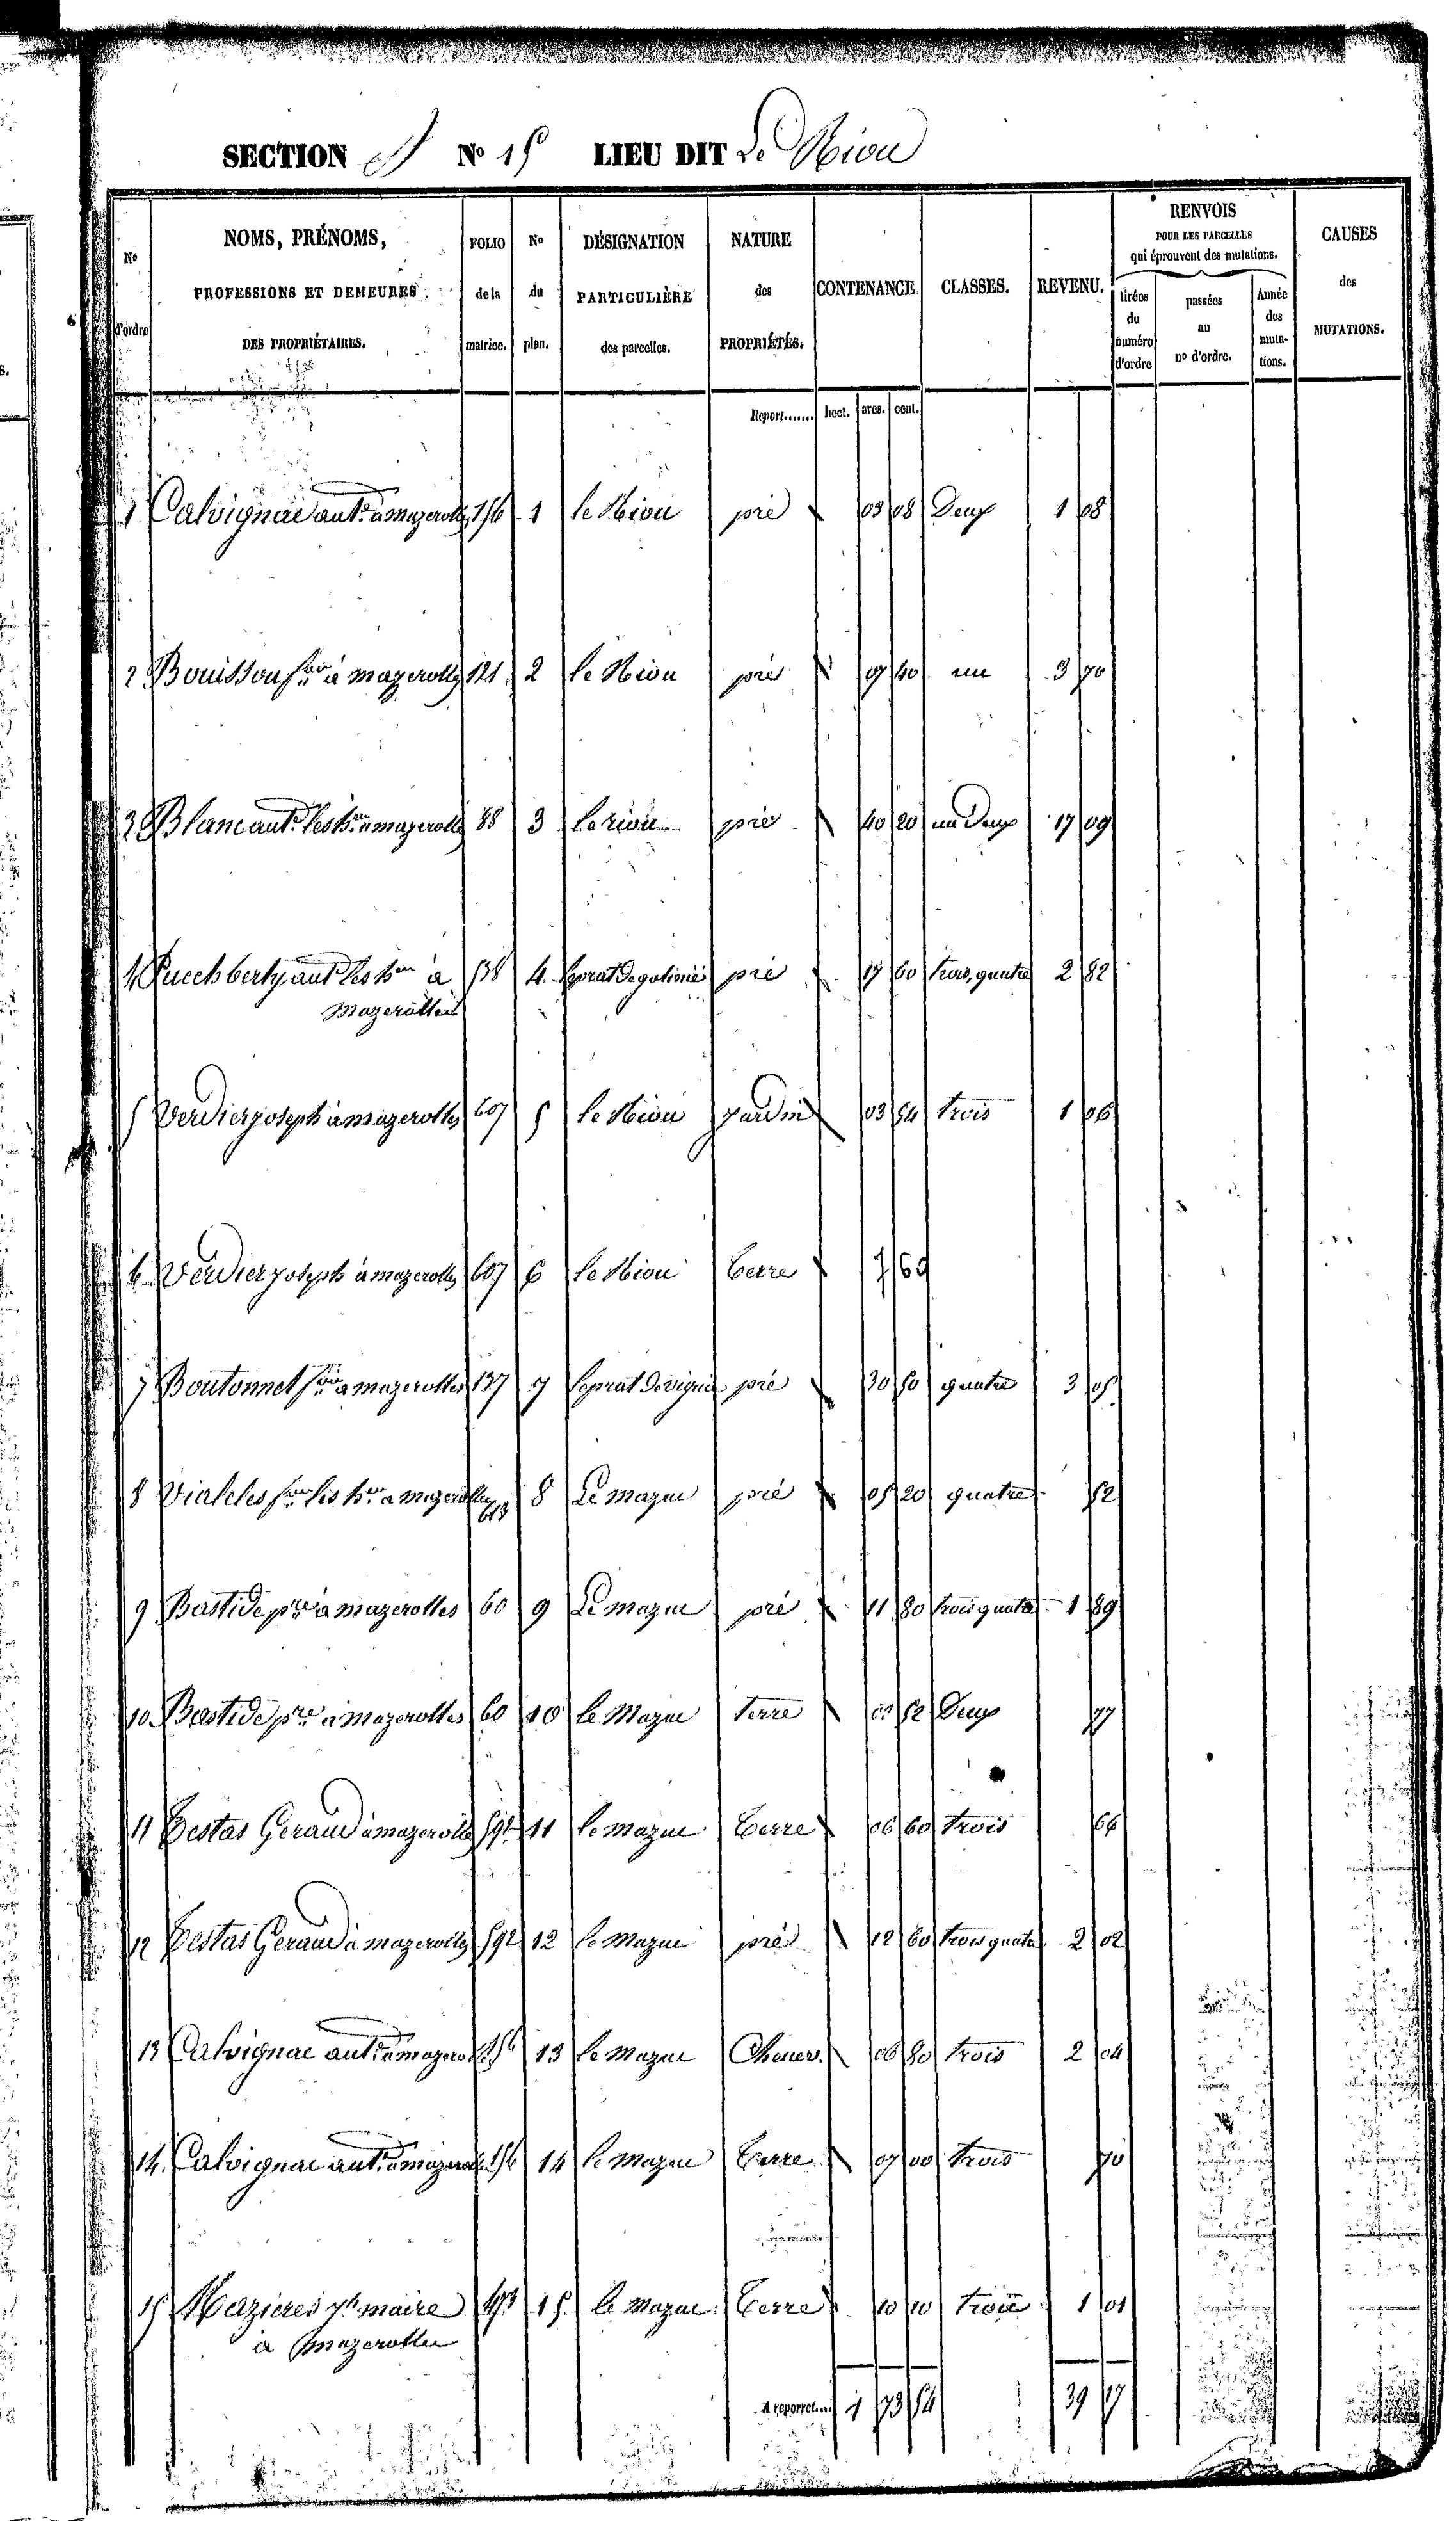 SECTION A No 15 LIEU DIT Le Riou
No d'ordre NOMS, PRÉNOMS, PROFESSIONS ET DEMEURES DES PROPRIÉTAIRES. FOLIO de la matrice. No du plan. DÉSIGNATION PARTICULIÈRE des parcelles. NATURE des PROPRIÉTÉS. CONTENANCE CLASSES. REVENU. RENVOIS POUR LES PARCELLES qui éprouvent des mutations. tirées du numéro d'ordre passées au no d'ordre. Année des mutations. CAUSES des MUTATIONS.
Report....... hect. ares. cent.
1 Calvignac ant.ne à mazerolles 156 1 le Riou pré 03 08 Deux 1 08
2 Bouisson à mazerolles 121 2 le Riou pré 07 40 une 3 70
3 Blanc ant.ne les h.ers à mazerolles 88 3 le riou pré 40 20 un Deux 17 09
4 Puechberty ant.ne les h.ers à 538 4 le prat de pré 17 60 trois, quatre 2 82
mazerolles
5 Verdier joseph à mazerolles 607 5 le Riou jardin 03 54 trois 1 06
6 Verdier joseph à mazerolles 607 6 le Riou terre 7 69
7 Boutonnet à mazerolles 137 7 le prat de vignie pré 30 50 quatre 3 05
8 Vialeles les h.ers à mazerolles 613 8 Le mazue pré 05 20 quatre 52
9 Bastide p.re à mazerolles 60 9 Le mazue pré 11 80 trois quatre 1 89
10 Bastide p.re à mazerolles 60 10 le Mazue terre 02 52 Deux 77
11 Testas Geraud à mazerolles 592 11 le mazue terre 06 60 trois 66
12 Testas Geraud à mazerolles 592 12 le mazue pré 12 60 trois quatre 2 02
13 Calvignac ant.ne à mazerolles 156 13 le mazue Chenev. 06 80 trois 2 04
14 Calvignac ant.ne à mazerolles 156 14 le mazue terre 07 00 trois 70
15 Mazieres j.h maire 473 15 le mazue terre 10 10 trois 1 01
à mazerolles
A reporter..... 1 73 54 39 17